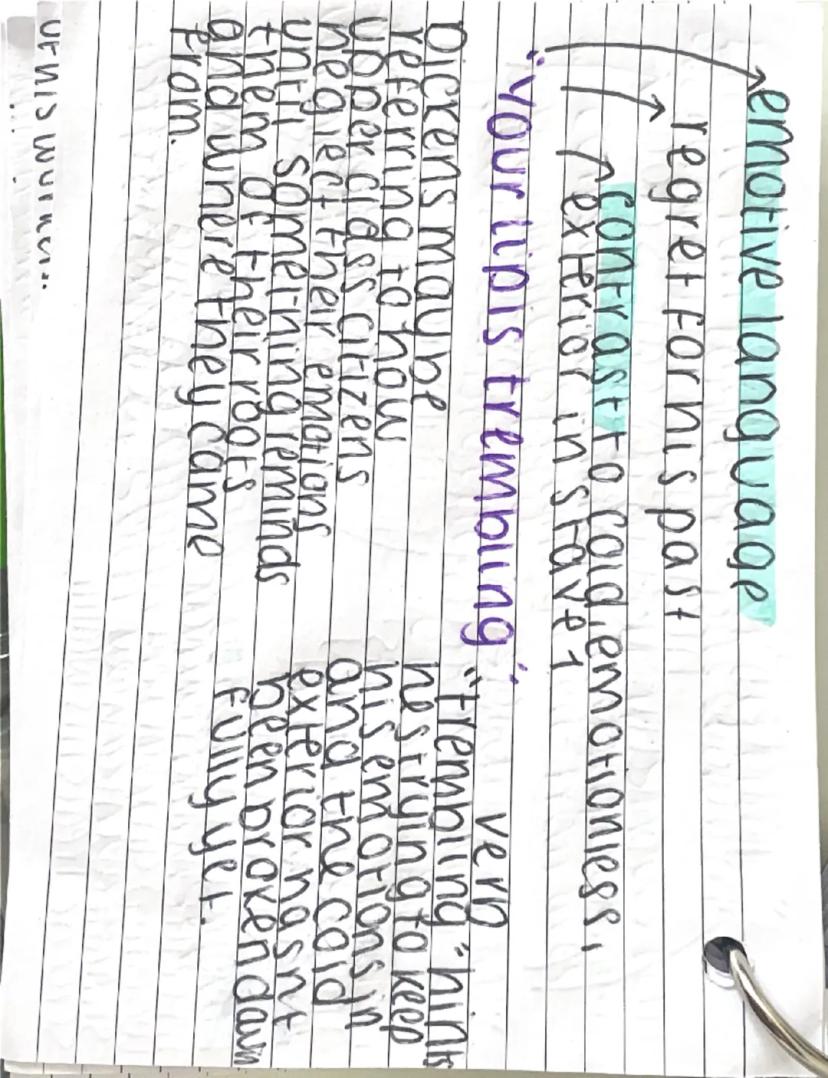 emotive language
regret for his past
contrast to cold, emotionless,
exterior in stave 1
"your lip is trembling"
Dickens may be
referring to how
upper class citizens
neglect their emotions
until something reminds
them of their roots
and where they came
from.
verb
"trembling" hints
hes trying to keep
his emotions in
and the cold
exterior hasnt
been broken down
fully yet.